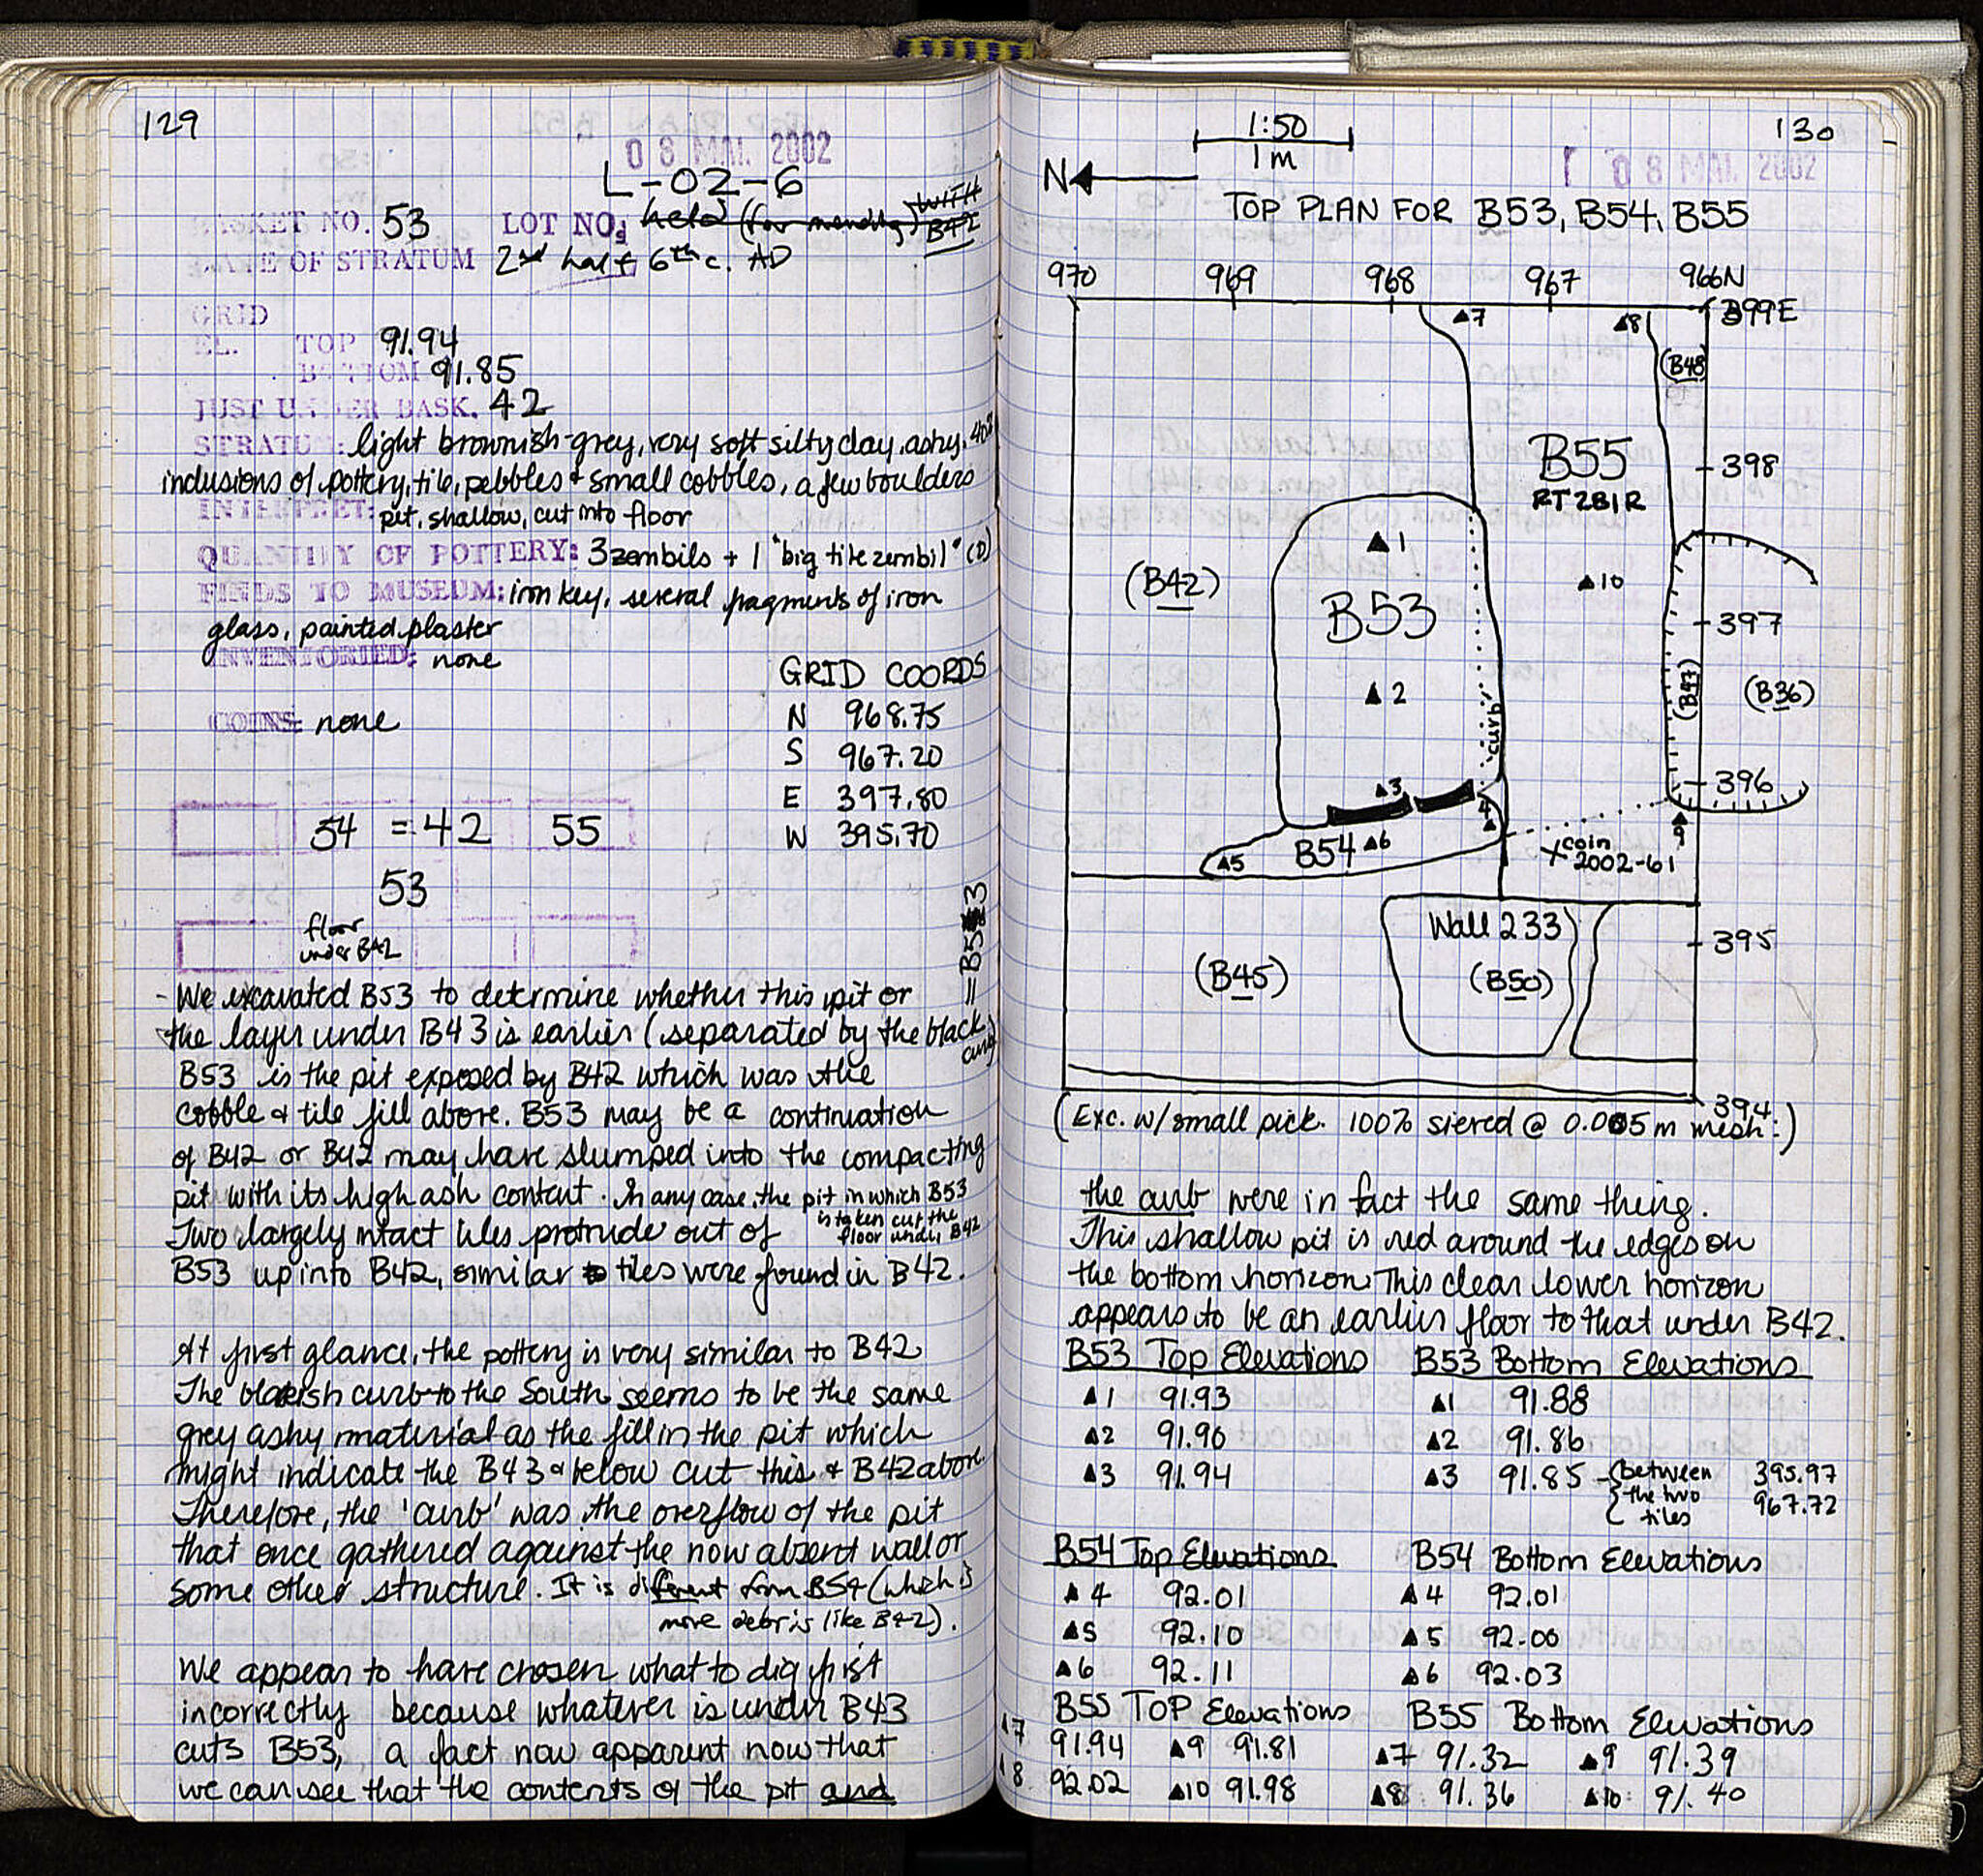 129
08 MAI 2002
L-02-6
BASKET NO. 53 LOT NO: held (for mending) WITH B42
DATE OF STRATUM 2nd half 6th c. AD
GRID
EL. TOP 91.94
BOTTOM 91.85
JUST UNDER BASK. 42
STRATUM: light brownish-grey, very soft silty clay, ashy, 40%
inclusions of pottery, tile, pebbles & small cobbles, a few boulders
INTERPRET: pit, shallow, cut into floor
QUANTITY OF POTTERY: 3 zembils + 1 "big tile zembil" (D)
FINDS TO MUSEUM: iron key, several fragments of iron
glass, painted plaster
INVENTORIED: none
COINS: none
GRID COORDS
N 968.75
S 967.20
E 397.80
W 395.70
54 = 42 55
53
floor
under B42
- We excavated B53 to determine whether this pit or = B53
the layer under B43 is earlier (separated by the black curb)
B53 is the pit exposed by B42 which was the
cobble & tile fill above. B53 may be a continuation
of B42 or B42 may have slumped into the compacting
pit with its high ash content. In any case, the pit in which B53
is taken cut the floor under B42
Two largely intact tiles protrude out of
B53 up into B42, similar to tiles were found in B42.
At first glance, the pottery is very similar to B42
The blackish curb to the South seems to be the same
grey ashy material as the fill in the pit which
might indicate the B43 & below cut this & B42 above.
Therefore, the 'curb' was the overflow of the pit
that once gathered against the now absent wall or
some other structure. It is different from B54 (which is
more debris like B42).
We appear to have chosen what to dig first
incorrectly because whatever is under B43
cuts B53, a fact now apparent now that
we can see that the contents of the pit and
130
1:50
1m
N
08 MAI 2002
TOP PLAN FOR B53, B54, B55
970 969 968 967 966N
399E
▲7 ▲8
(B48)
B55
RT2B1R
398
▲1
(B42)
▲10
B53
397
▲2
curb
(B47)
(B36)
396
▲3
4▲
▲9
▲5 B54 ▲6
x coin
2002-61
Wall 233
395
(B45)
(B50)
394
(Exc. w/ small pick. 100% sieved @ 0.005m mesh.)
the curb were in fact the same thing.
This shallow pit is red around the edges on
the bottom horizon. This clear lower horizon
appears to be an earlier floor to that under B42.
B53 Top Elevations B53 Bottom Elevations
▲1 91.93 ▲1 91.88
▲2 91.96 ▲2 91.86
▲3 91.94 ▲3 91.85 {between the two tiles 395.97 967.72
B54 Top Elevations B54 Bottom Elevations
▲4 92.01 ▲4 92.01
▲5 92.10 ▲5 92.00
▲6 92.11 ▲6 92.03
B55 TOP Elevations B55 Bottom Elevations
▲7 91.94 ▲9 91.81 ▲7 91.32 ▲9 91.39
▲8 92.02 ▲10 91.98 ▲8 91.36 ▲10 91.40